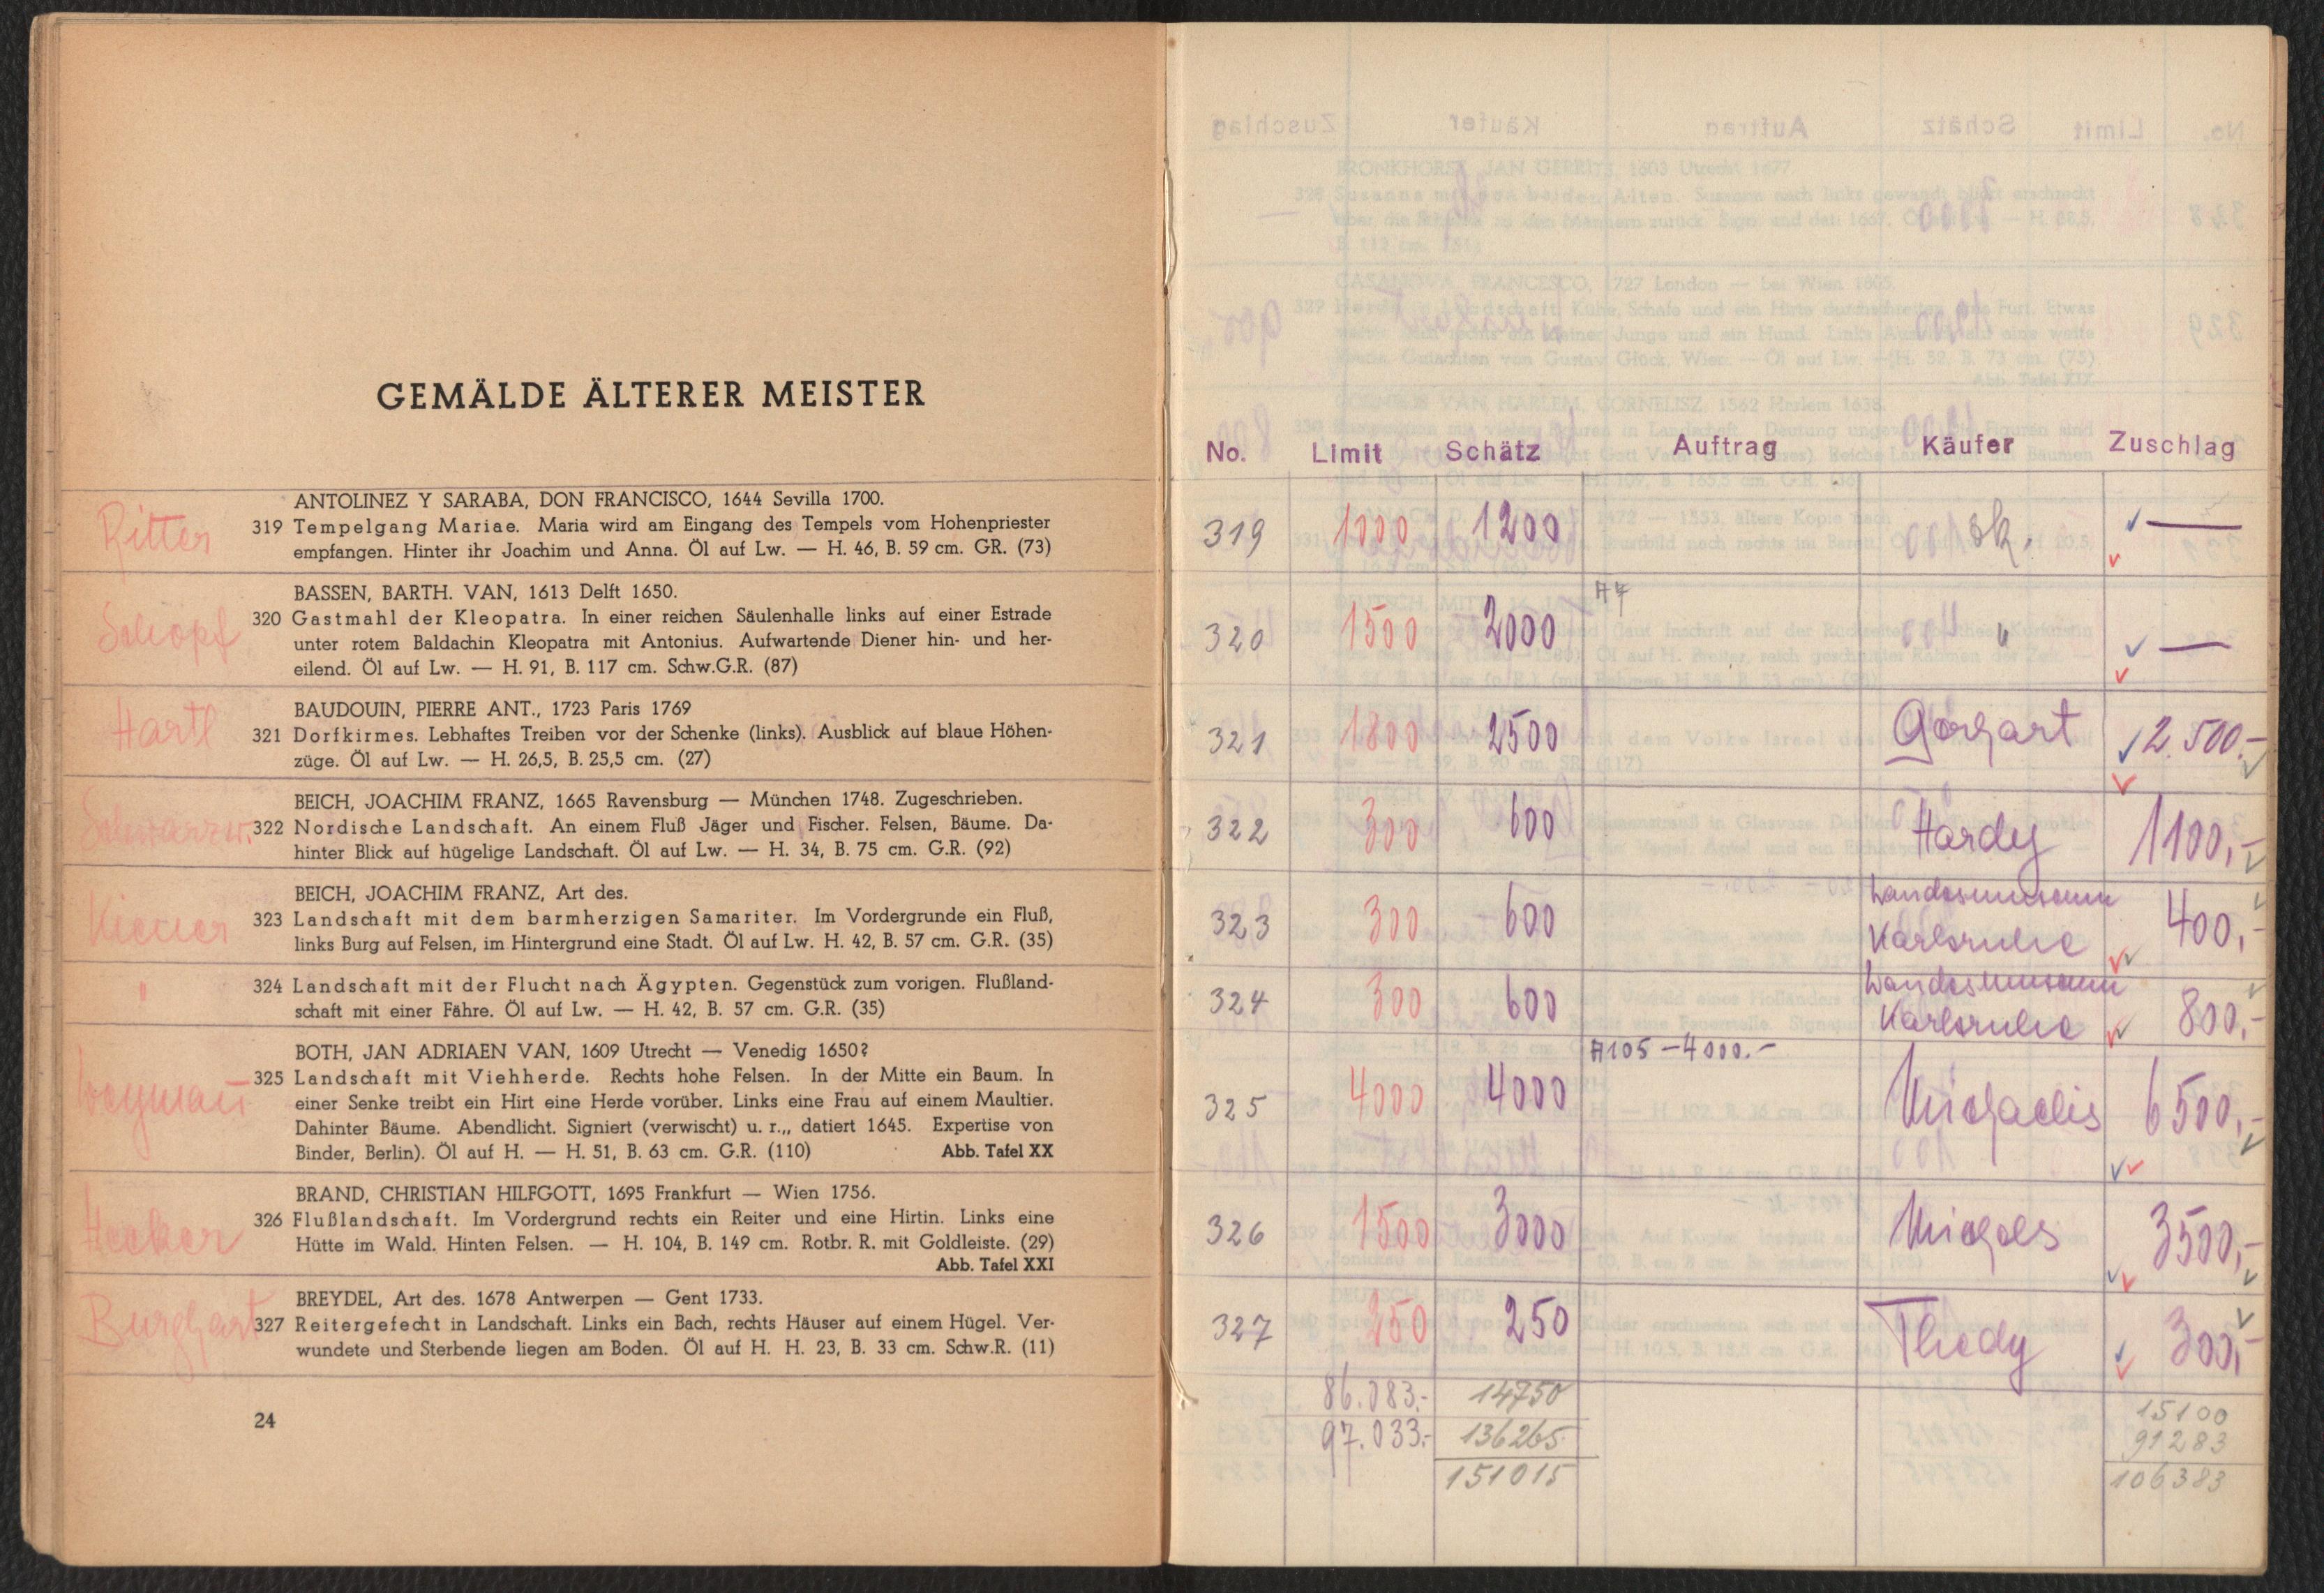 GEMÄLDE ÄLTERER MEISTER
Ritter
ANTOLINEZ Y SARABA, DON FRANCISCO, 1644 Sevilla 1700.
319 Tempelgang Mariae. Maria wird am Eingang des Tempels vom Hohenpriester
empfangen. Hinter ihr Joachim und Anna. Öl auf Lw. — H. 46, B. 59 cm. GR. (73)
Schöpf
BASSEN, BARTH. VAN, 1613 Delft 1650.
320 Gastmahl der Kleopatra. In einer reichen Säulenhalle links auf einer Estrade
unter rotem Baldachin Kleopatra mit Antonius. Aufwartende Diener hin- und her-
eilend. Öl auf Lw. — H. 91, B. 117 cm. Schw.G.R. (87)
Hartl
BAUDOUIN, PIERRE ANT., 1723 Paris 1769
321 Dorfkirmes. Lebhaftes Treiben vor der Schenke (links). Ausblick auf blaue Höhen-
züge. Öl auf Lw. — H. 26,5, B. 25,5 cm. (27)
BEICH, JOACHIM FRANZ, 1665 Ravensburg — München 1748. Zugeschrieben.
322 Nordische Landschaft. An einem Fluß Jäger und Fischer. Felsen, Bäume. Da-
hinter Blick auf hügelige Landschaft. Öl auf Lw. — H. 34, B. 75 cm. G.R. (92)
Kiener
BEICH, JOACHIM FRANZ, Art des.
323 Landschaft mit dem barmherzigen Samariter. Im Vordergrunde ein Fluß,
links Burg auf Felsen, im Hintergrund eine Stadt. Öl auf Lw. H. 42, B. 57 cm. G.R. (35)
"
324 Landschaft mit der Flucht nach Ägypten. Gegenstück zum vorigen. Flußland-
schaft mit einer Fähre. Öl auf Lw. — H. 42, B. 57 cm. G.R. (35)
BOTH, JAN ADRIAEN VAN, 1609 Utrecht — Venedig 1650?
325 Landschaft mit Viehherde. Rechts hohe Felsen. In der Mitte ein Baum. In
einer Senke treibt ein Hirt eine Herde vorüber. Links eine Frau auf einem Maultier.
Dahinter Bäume. Abendlicht. Signiert (verwischt) u. r.,, datiert 1645. Expertise von
Binder, Berlin). Öl auf H. — H. 51, B. 63 cm. G.R. (110) Abb. Tafel XX
Hecker
BRAND, CHRISTIAN HILFGOTT, 1695 Frankfurt — Wien 1756.
326 Flußlandschaft. Im Vordergrund rechts ein Reiter und eine Hirtin. Links eine
Hütte im Wald. Hinten Felsen. — H. 104, B. 149 cm. Rotbr. R. mit Goldleiste. (29)
Abb. Tafel XXI
Burghart
BREYDEL, Art des. 1678 Antwerpen — Gent 1733.
327 Reitergefecht in Landschaft. Links ein Bach, rechts Häuser auf einem Hügel. Ver-
wundete und Sterbende liegen am Boden. Öl auf H. H. 23, B. 33 cm. Schw.R. (11)
24
No. Limit Schätz Auftrag Käufer Zuschlag
319 1000 1200 —
A 7
320 1500 2000 " —
321 1800 2500 2.500.-
322 300 600 Hardy 1100,-
323 300 600 Landesmuseum Karlsruhe 400,-
324 300 600 Landesmuseum Karlsruhe 800,-
A105 – 4000.-
325 4000 4000 Michaelis 6500,-
326 1500 3000 3500,-
327 250 250 Thedy 300,-
86.083.- 14750 15100
97.033.- 136265 91283
151015 106383